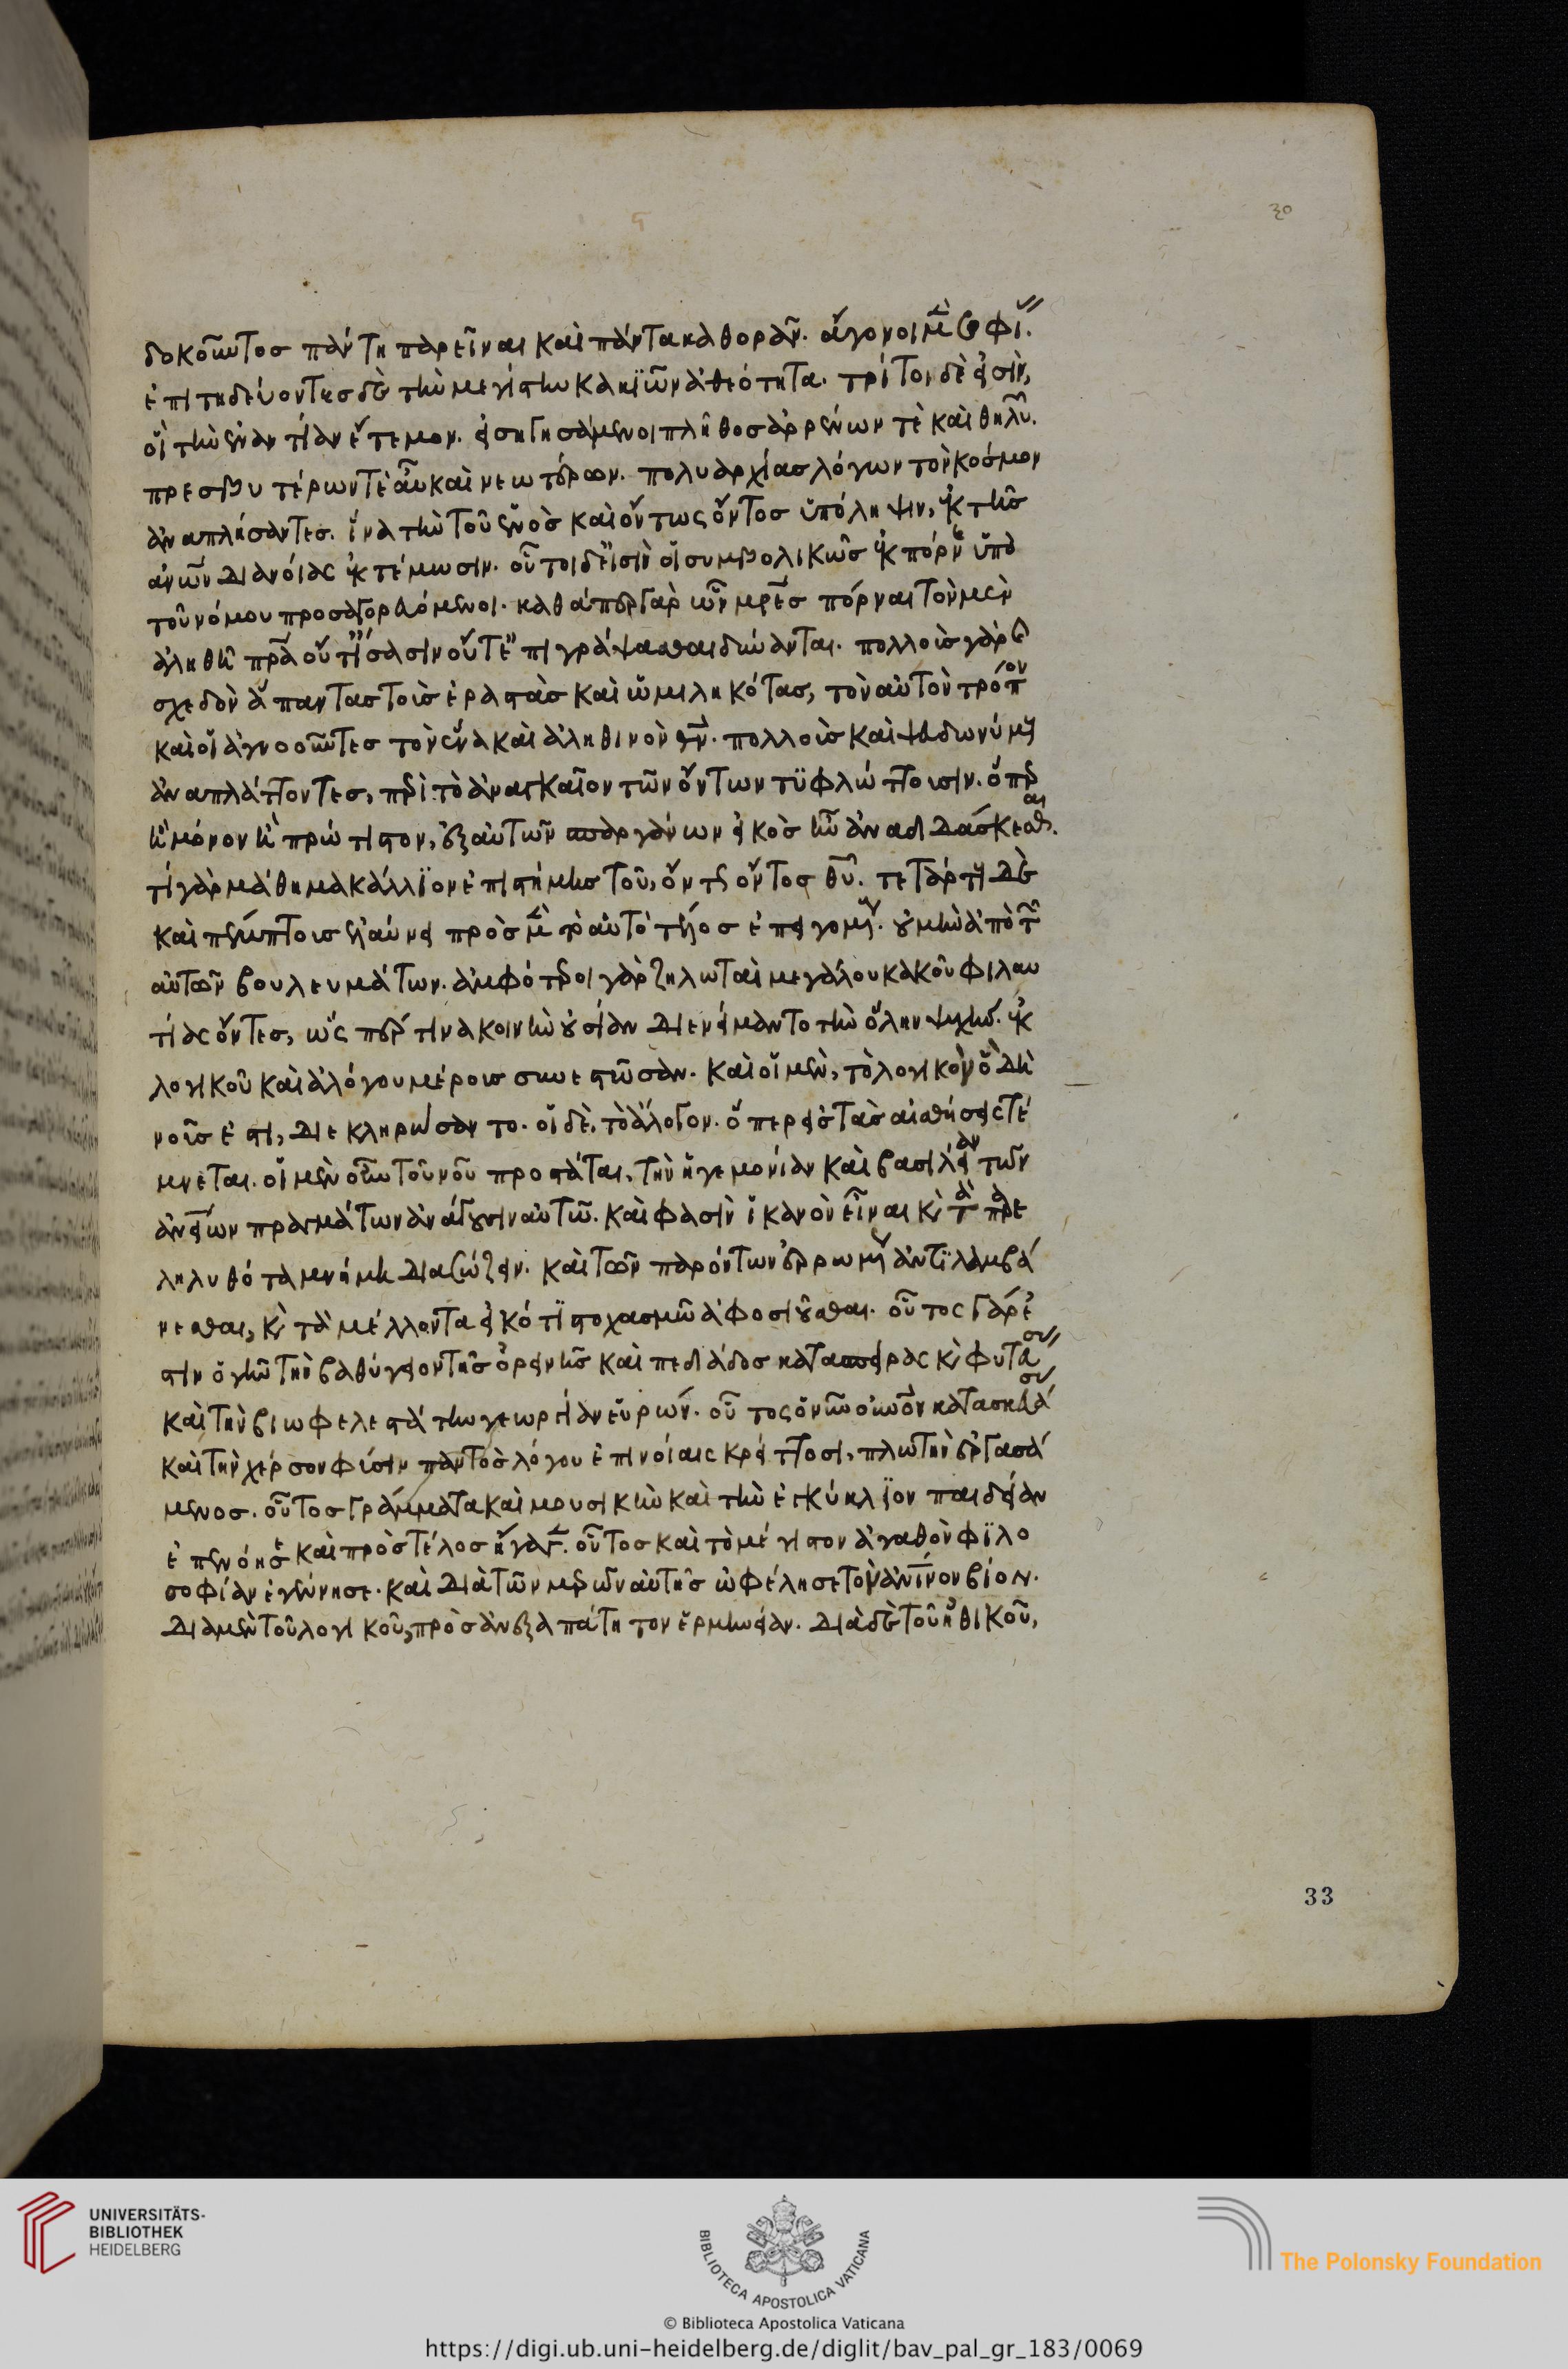 δοκοῦντος πάντη παρεῖναι καὶ πάντα καθορᾶν. ἄγονοι μὲ σοφί.
ἐπιτηδεύοντες δὲ τὴν μεγίστην κακϊῶν ἀθεότητα. τρίτοι δὲ εἰσὶν,
οἳ τὴν ἐναντίαν ἔτεμον. εἰσηγησάμενοι πλῆθος ἀρρένων τὲ καὶ θηλυ.
πρεσβυτέρων τὲ αὖ καὶ νεωτέρων. πολυαρχίας λόγων τὸν κόσμον
ἀναπλήσαντες. ἵνα τὴν τοῦ ἑνὸς καὶ ὄντως ὄντος ὑπόληψιν, ἐκ τῆς
ἀνων διανοίας ἐκτέμωσιν. οὗτοι δ' εἰσὶν οἱ συμβολικῶς ἐκ πόρνης ὑπὸ
τοῦ νόμου προσαγορευόμενοι. καθάπερ γὰρ ὧν μρες πόρναι τὸν μὲν
ἀληθῆ πρα οὔτ' ἴσασιν οὔτ' ἐπιγράψασθαι δύνανται. πολλοῖς γὰρ
σχεδὸν ἅπαντας τοῖς ἐραστὰς καὶ ὡμιληκότας, τὸν αὐτὸν τρόπον
καὶ οἱ ἀγνοοῦντες τὸν ἕνα καὶ ἀληθινὸν θν. πολλοῖς καὶ ψευδωνύμους
ἀναπλάττοντες, περὶ τὸ ἀναγκαῖον τῶν ὄντων τϋφλώττουσιν. ὅπερ
ἢ μόνον ἢ πρώτιστον, ἐξ αὐτῶν σπαργάνων εἰκὸς ἦν ἀναδιδάσκεσθαι.
τί γὰρ μάθημα κάλλϊον ἐπιστήμης τοῦ, ὄντως ὄντος θυ. τετάρτη δὲ
καὶ πέμπτοις ἐλαύνει πρὸς μὲν τὸ αὐτὸ τέλος ἐπειγομεν. οὐ μὴν ἀπὸ τῶν
αὐτῶν βουλευμάτων. ἀμφότεροι γὰρ ζηλωταὶ μεγάλου κακοῦ φιλαυ
τίας ὄντες, ὥσπερ τινα κοινὴν οὐσίαν διενείμαντο τὴν ὅλην ψυχήν. ἐκ
λογικοῦ καὶ ἀλόγου μέροις συνεστῶσαν. καὶ οἱ μὲν, τὸ λογικὸν ὃ δὴ
νοῦς ἐστι, διεκληρώσαντο. οἱ δὲ, τὸ ἄλογον. ὅπερ εἰς τὰς αἰσθήσεις τέ
μνεται. οἱ μὲν οὖν τοῦ νοῦ προστάται, τὴν ἡγεμονίαν καὶ βασιλείαν τῶν
ἀνείων πραγμάτων ἀνάγουσιν αὐτῶ. καὶ φασὶν ἱκανὸν εἶναι κ τὰ παρε
ληλυθότα μνήμη διασώζειν. καὶ τῶν παρόντων ἐρρωμεν ἀντϊλαμβά
νεσθαι, κ τὰ μέλλοντα εἰκότϊ στοχασμῶ ἀφοσιοῦσθαι. οὗτος γάρ ἐ
στιν ὁ γῆν τὴν βαθύγειον τῆς ὀρεινῆς καὶ πεδιάδος κατασπείρας κ φυτεύσ
καὶ τὴν βιωφελεστάτην γεωργίαν εὑρών. οὗτος ὁ ναῦν οἰωὸν κατασκευάσ
καὶ τὴν χέρσον φύσιν παντὸς λόγου ἐπινοίαις κρείττοσι, πλωτὴν ἐργασά
μενος. οὗτος γράμματα καὶ μουσικὴν καὶ τὴν ἐγκύκλϊον παιδείαν
ἐπενόησέ καὶ πρὸς τέλος ἤγαγε. οὗτος καὶ τὸ μέγιστον ἀγαθὸν φϊλο
σοφίαν ἐγέννησε. καὶ διὰ τῶν μερῶν αὐτῆς ὠφέλησε τὸν ἀνινον βίον.
διὰ μὲν τοῦ λογικοῦ, πρὸς ἀνεξαπάτητον ἑρμηνείαν. διὰ δὲ τοῦ ἠθικοῦ,
30
33
UNIVERSITÄTS-
BIBLIOTHEK
HEIDELBERG
BIBLIOTECA APOSTOLICA VATICANA
The Polonsky Foundation
© Biblioteca Apostolica Vaticana
https://digi.ub.uni-heidelberg.de/diglit/bav_pal_gr_183/0069